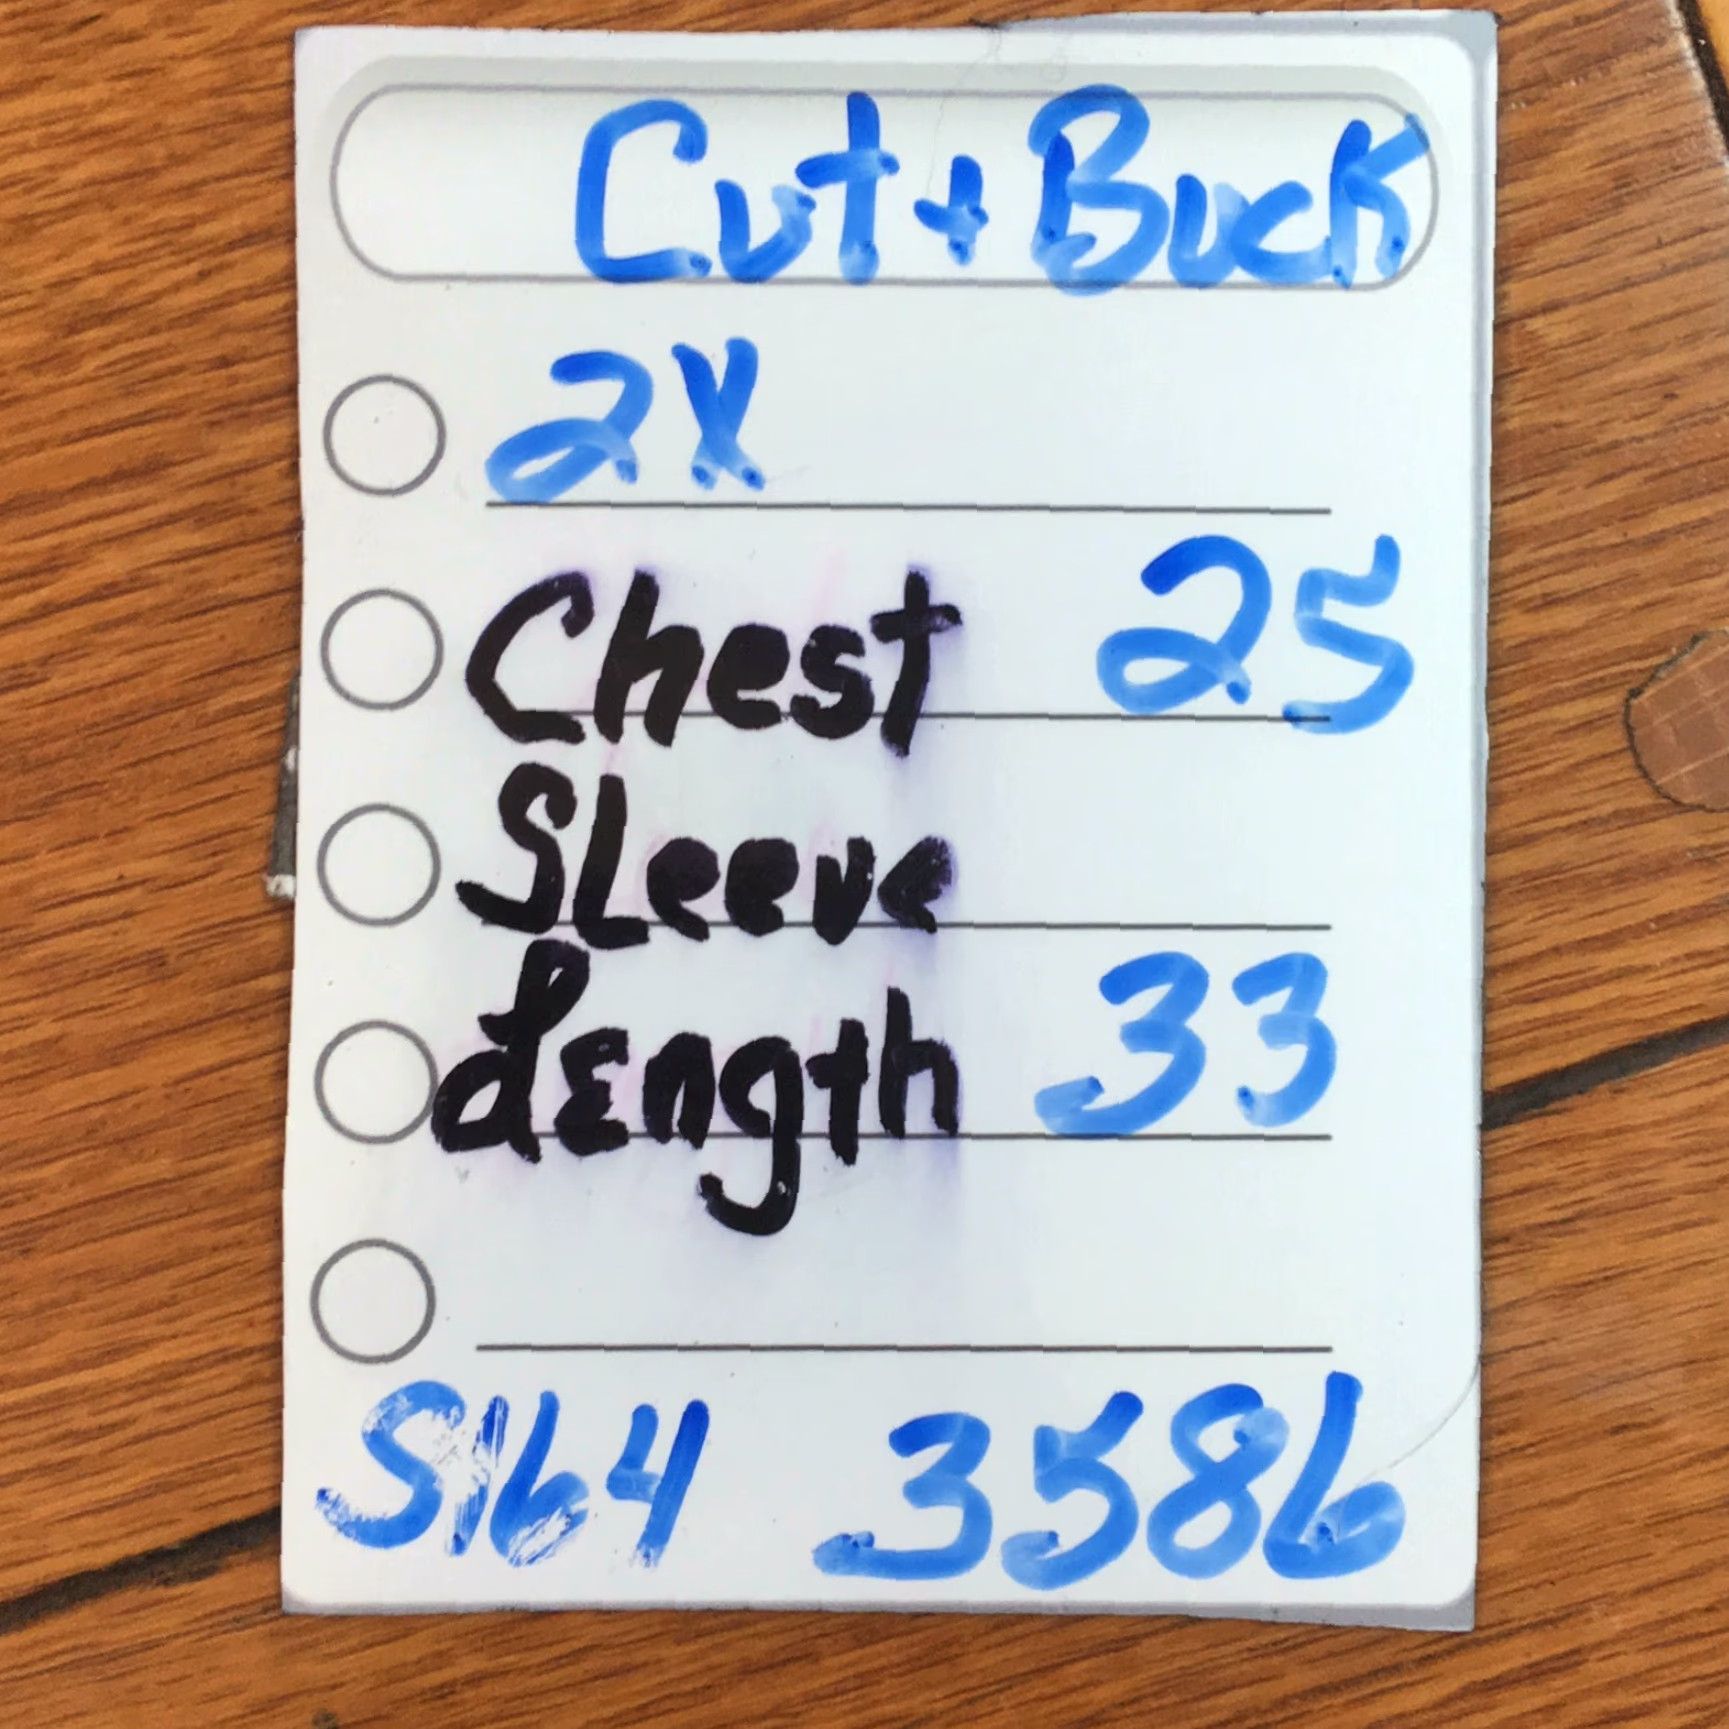 Cut + Buck
2X
Chest 25
SLeeve
Length 33
S164 3586